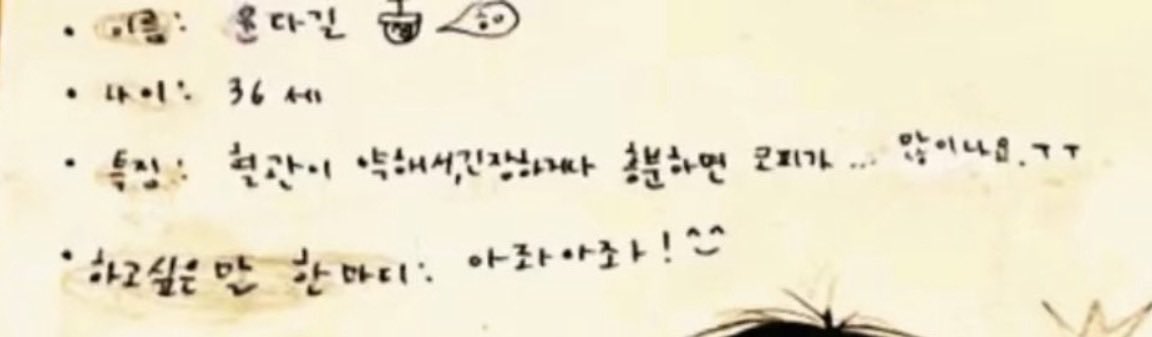 • 이름: 윤다길
• 나이: 36 세
• 특징: 혈관이 약해서,긴장하거나 흥분하면 코피가 ... 많이나요.ㅜㅜ
• 하고싶은 말 한마디: 아좌아좌! ^^